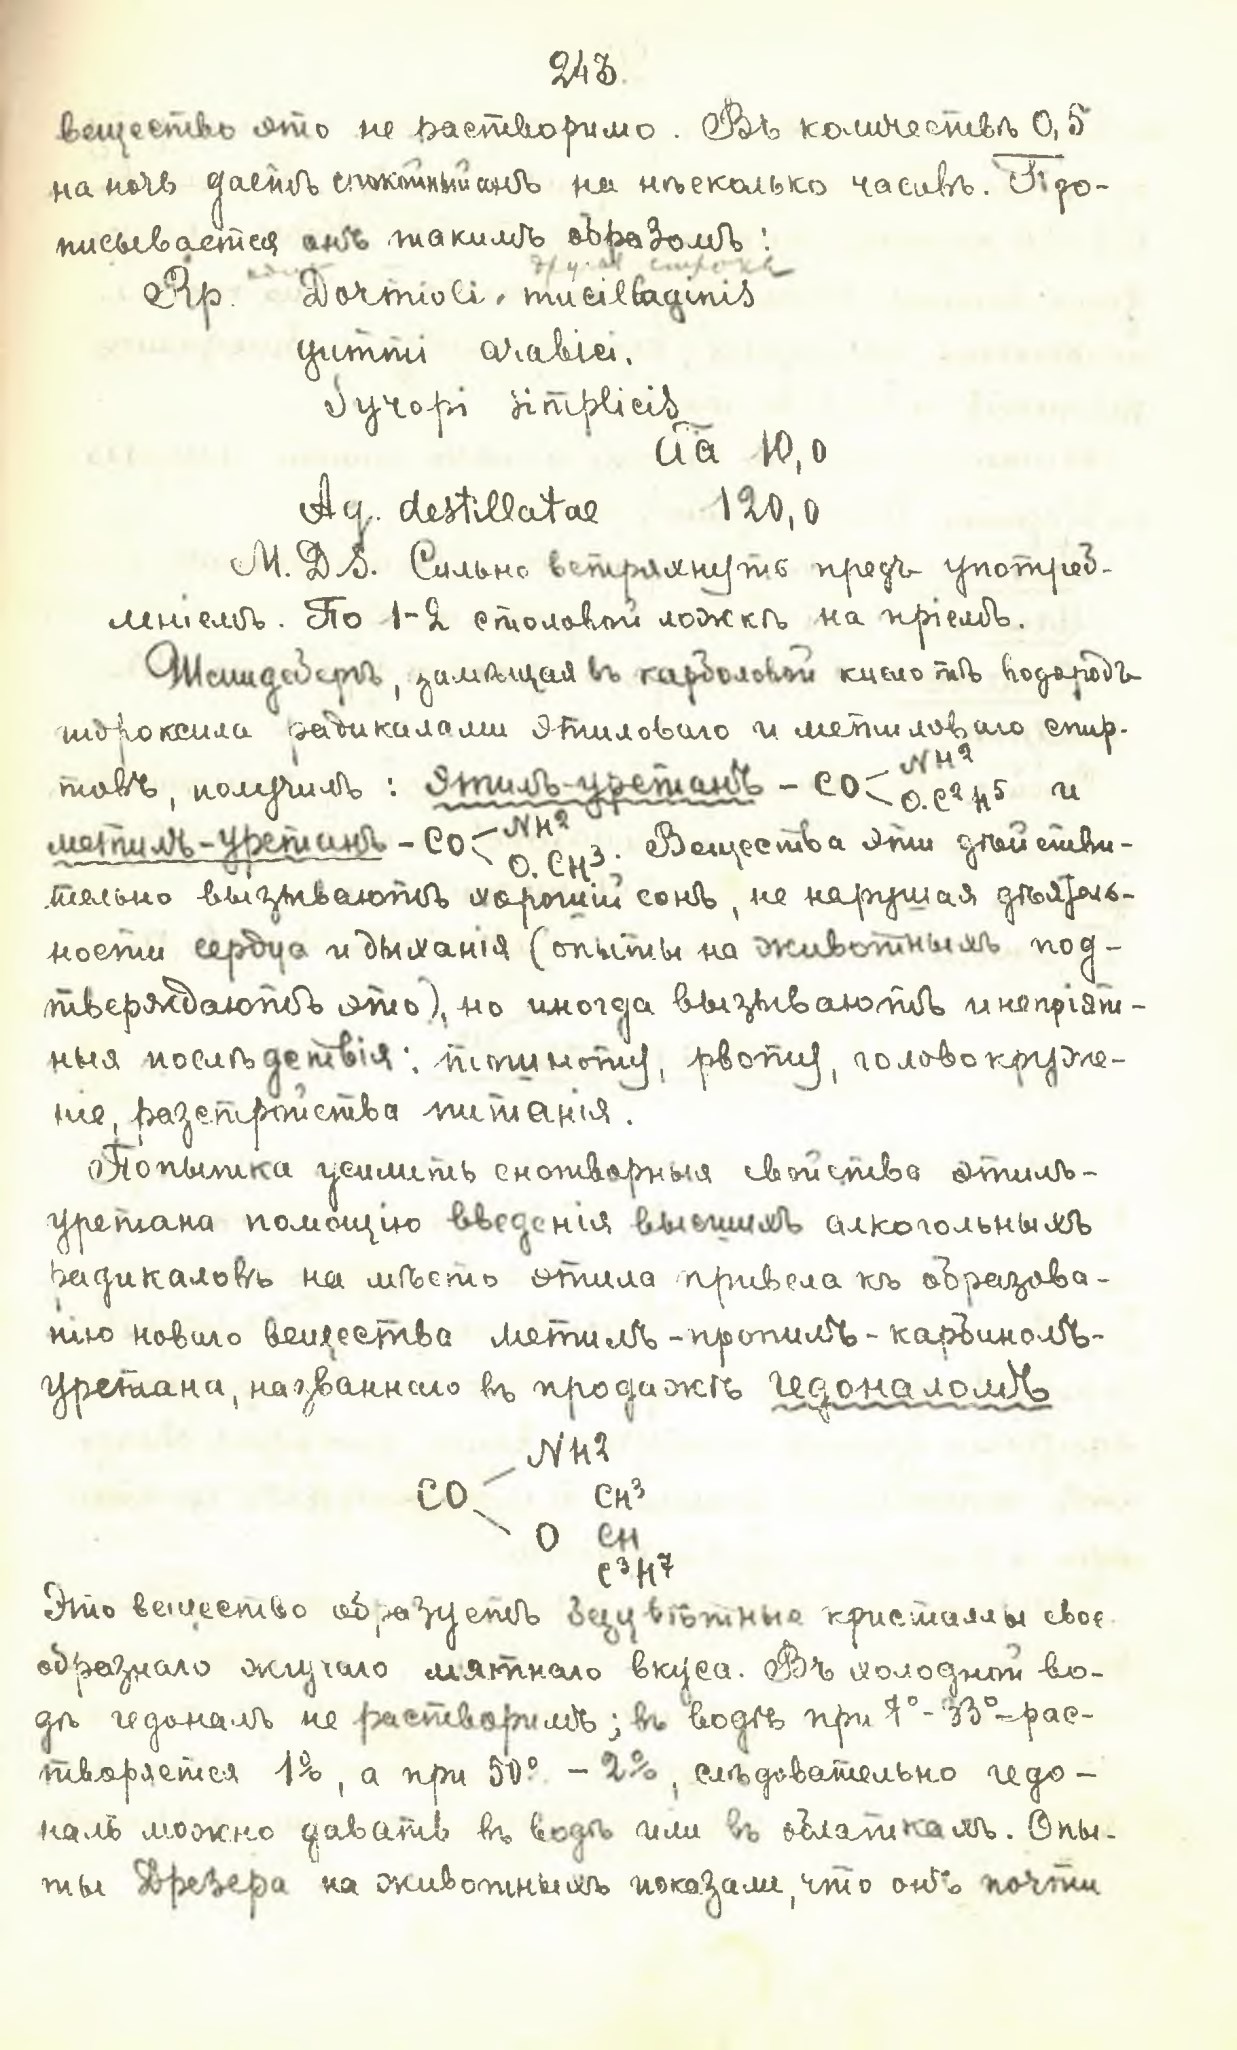 243.
вещество это не растворимо. Въ количествѣ 0,5
на ночь даетъ спокойный сонъ на нѣсколько часовъ. Про-
писывается онъ такимъ образомъ:
другая строка
Rp. Dormioli. mucillaginis
gummi arabici.
Syropi simplicis
āā 10,0
Aq. destillatae 120,0
M. D S. Сильно встряхнуть предъ употреб-
леніемъ. По 1-2 столовой ложкѣ на пріемъ.
Шмидебергъ, замѣщая въ карболовой кислотѣ водородъ
гидроксила радикалами этиловаго и метиловаго спир-
товъ, получилъ: этилъ-уретанъ - CO < NH2 O.C2H5 и
метилъ-уретанъ - CO < NH2 O.CH3; Вещества эти дѣйстви-
тельно вызываютъ хорошій сонъ, не нарушая дѣятель-
ности сердца и дыханія (опыты на животныхъ под-
тверждаютъ это), но иногда вызываютъ и непріят-
ныя послѣдствія: тошноту, рвоту, головокруже-
ніе, разстройства питанія.
Попытка усилить снотворныя свойства этилъ-
уретана помощію введенія высшихъ алкогольныхъ
радикаловъ на мѣсто этила привела къ образова-
нію новаго вещества метилъ-пропилъ-карбинолъ-
уретана, названнаго въ продажѣ гедоналомъ
NH2
CO CH3
O CH
C3H7
Это вещество образуетъ безцвѣтные кристаллы свое
образнаго жгучаго мятнаго вкуса. Въ холодной во-
дѣ гедоналъ не растворимъ; въ водѣ при 7°-33°-рас-
творяется 1%, а при 50° - 2%, слѣдовательно гедо-
налъ можно давать въ водѣ или въ облаткахъ. Опы-
ты Дрезера на животныхъ показали, что онъ почти